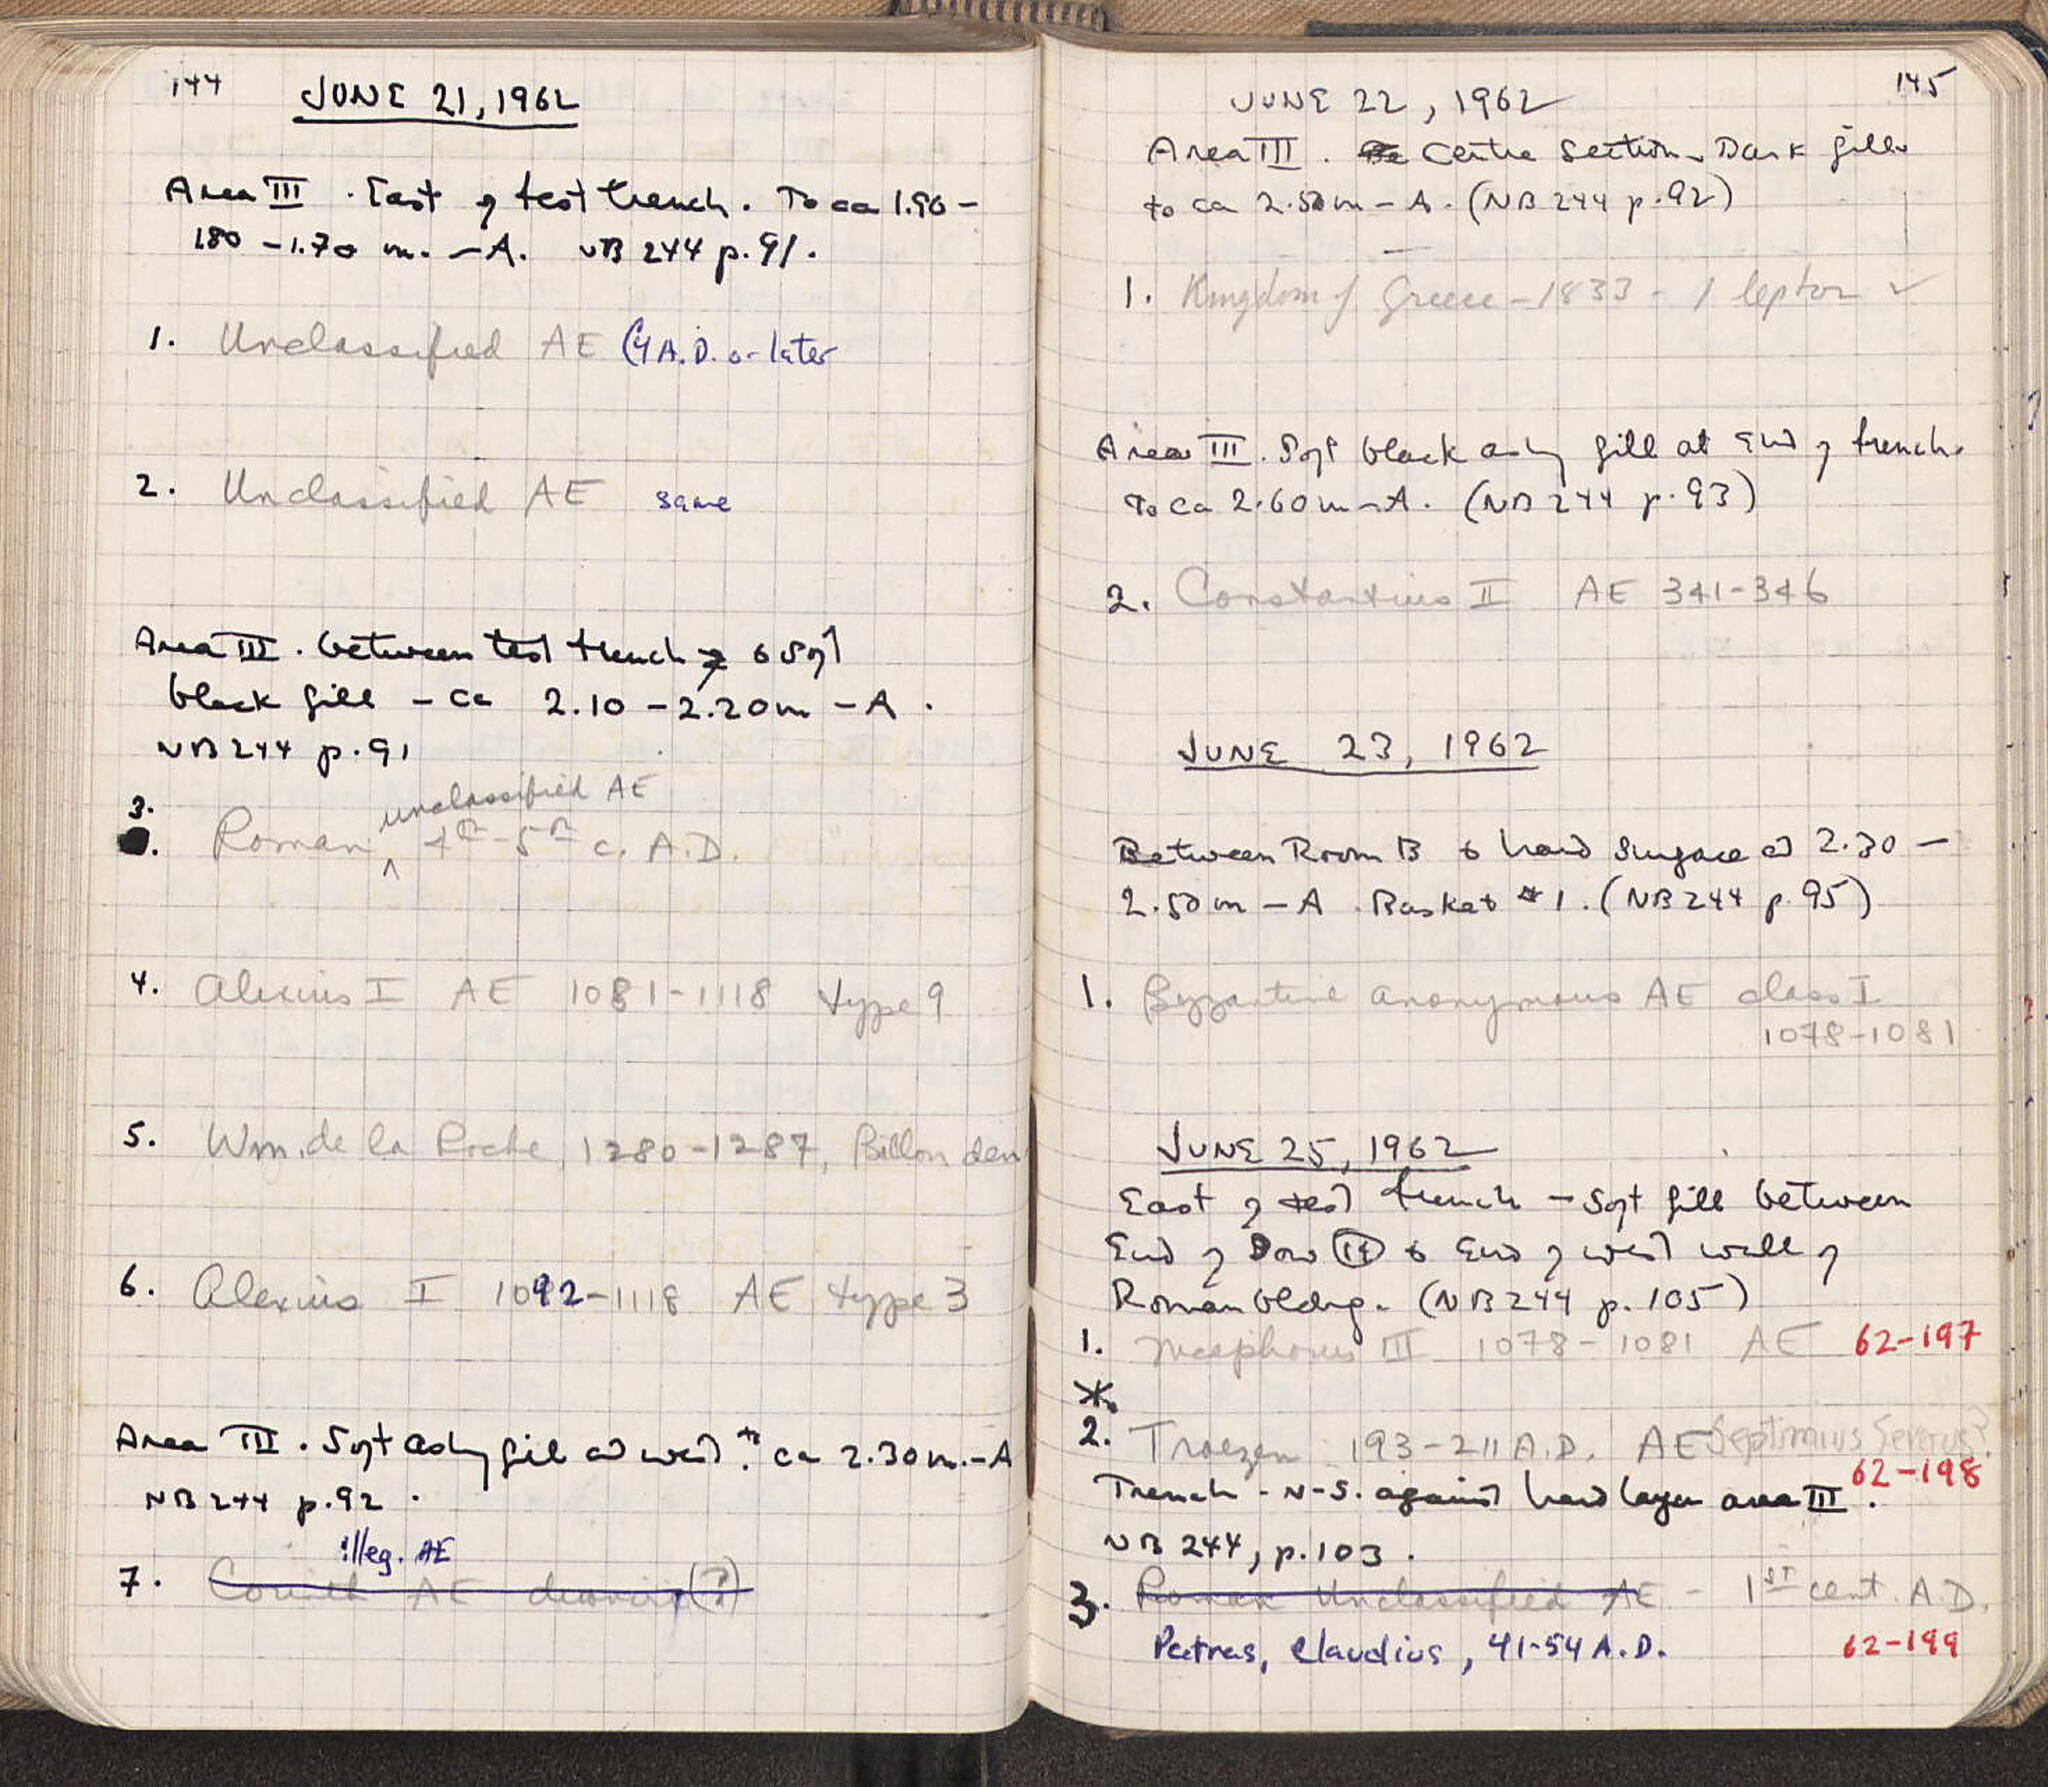 144
JUNE 21, 1962
Area III . East of test trench. To ca 1.90 -
180 - 1.70 m. - A. NB 244 p. 91.
1. Unclassified AE C4 A.D. or later
2. Unclassified AE same
Area III . between test trench & soft
black fill - ca 2.10 - 2.20m - A .
NB 244 p. 91
unclassified AE
3. Roman ^ 4th - 5th c. A.D.
4. Alexius I AE 1081-1118 type 9
5. Wm. de la Roche, 1280-1287, Billon den
6. Alexius I 1092-1118 AE type 3
Area III . Soft ashy fill at west to ca 2.30m. - A
NB 244 p. 92 .
illeg. AE
7. Corinth AE duoviri (?)
145
JUNE 22, 1962
Area III . Centre Section. Dark fill.
to ca 2.50m - A. (NB 244 p. 92)
1. Kingdom of Greece - 1833 - 1 lepton ✓
Area III . Soft black ashy fill at End of trench.
To ca 2.60m - A. (NB 244 p. 93)
2. Constantius II AE 341-346
JUNE 23, 1962
Between Room B & hard surface at 2.30 -
2.50m - A . Basket #1. (NB 244 p. 95)
1. Byzantine anonymous AE class I
1078-1081
JUNE 25, 1962
East of test trench - Soft fill between
End of & End of west wall of
Roman bldg. (NB 244 p. 105)
1. Nicephorus III 1078-1081 AE 62-197
*
2. Troezen 193-211 A.D. AE Septimius Severus?
62-198
Trench - N-S. against hard layer area III .
NB 244, p. 103 .
3. Roman Unclassified AE - 1st cent. A.D.
Patras, Claudius, 41-54 A.D. 62-199